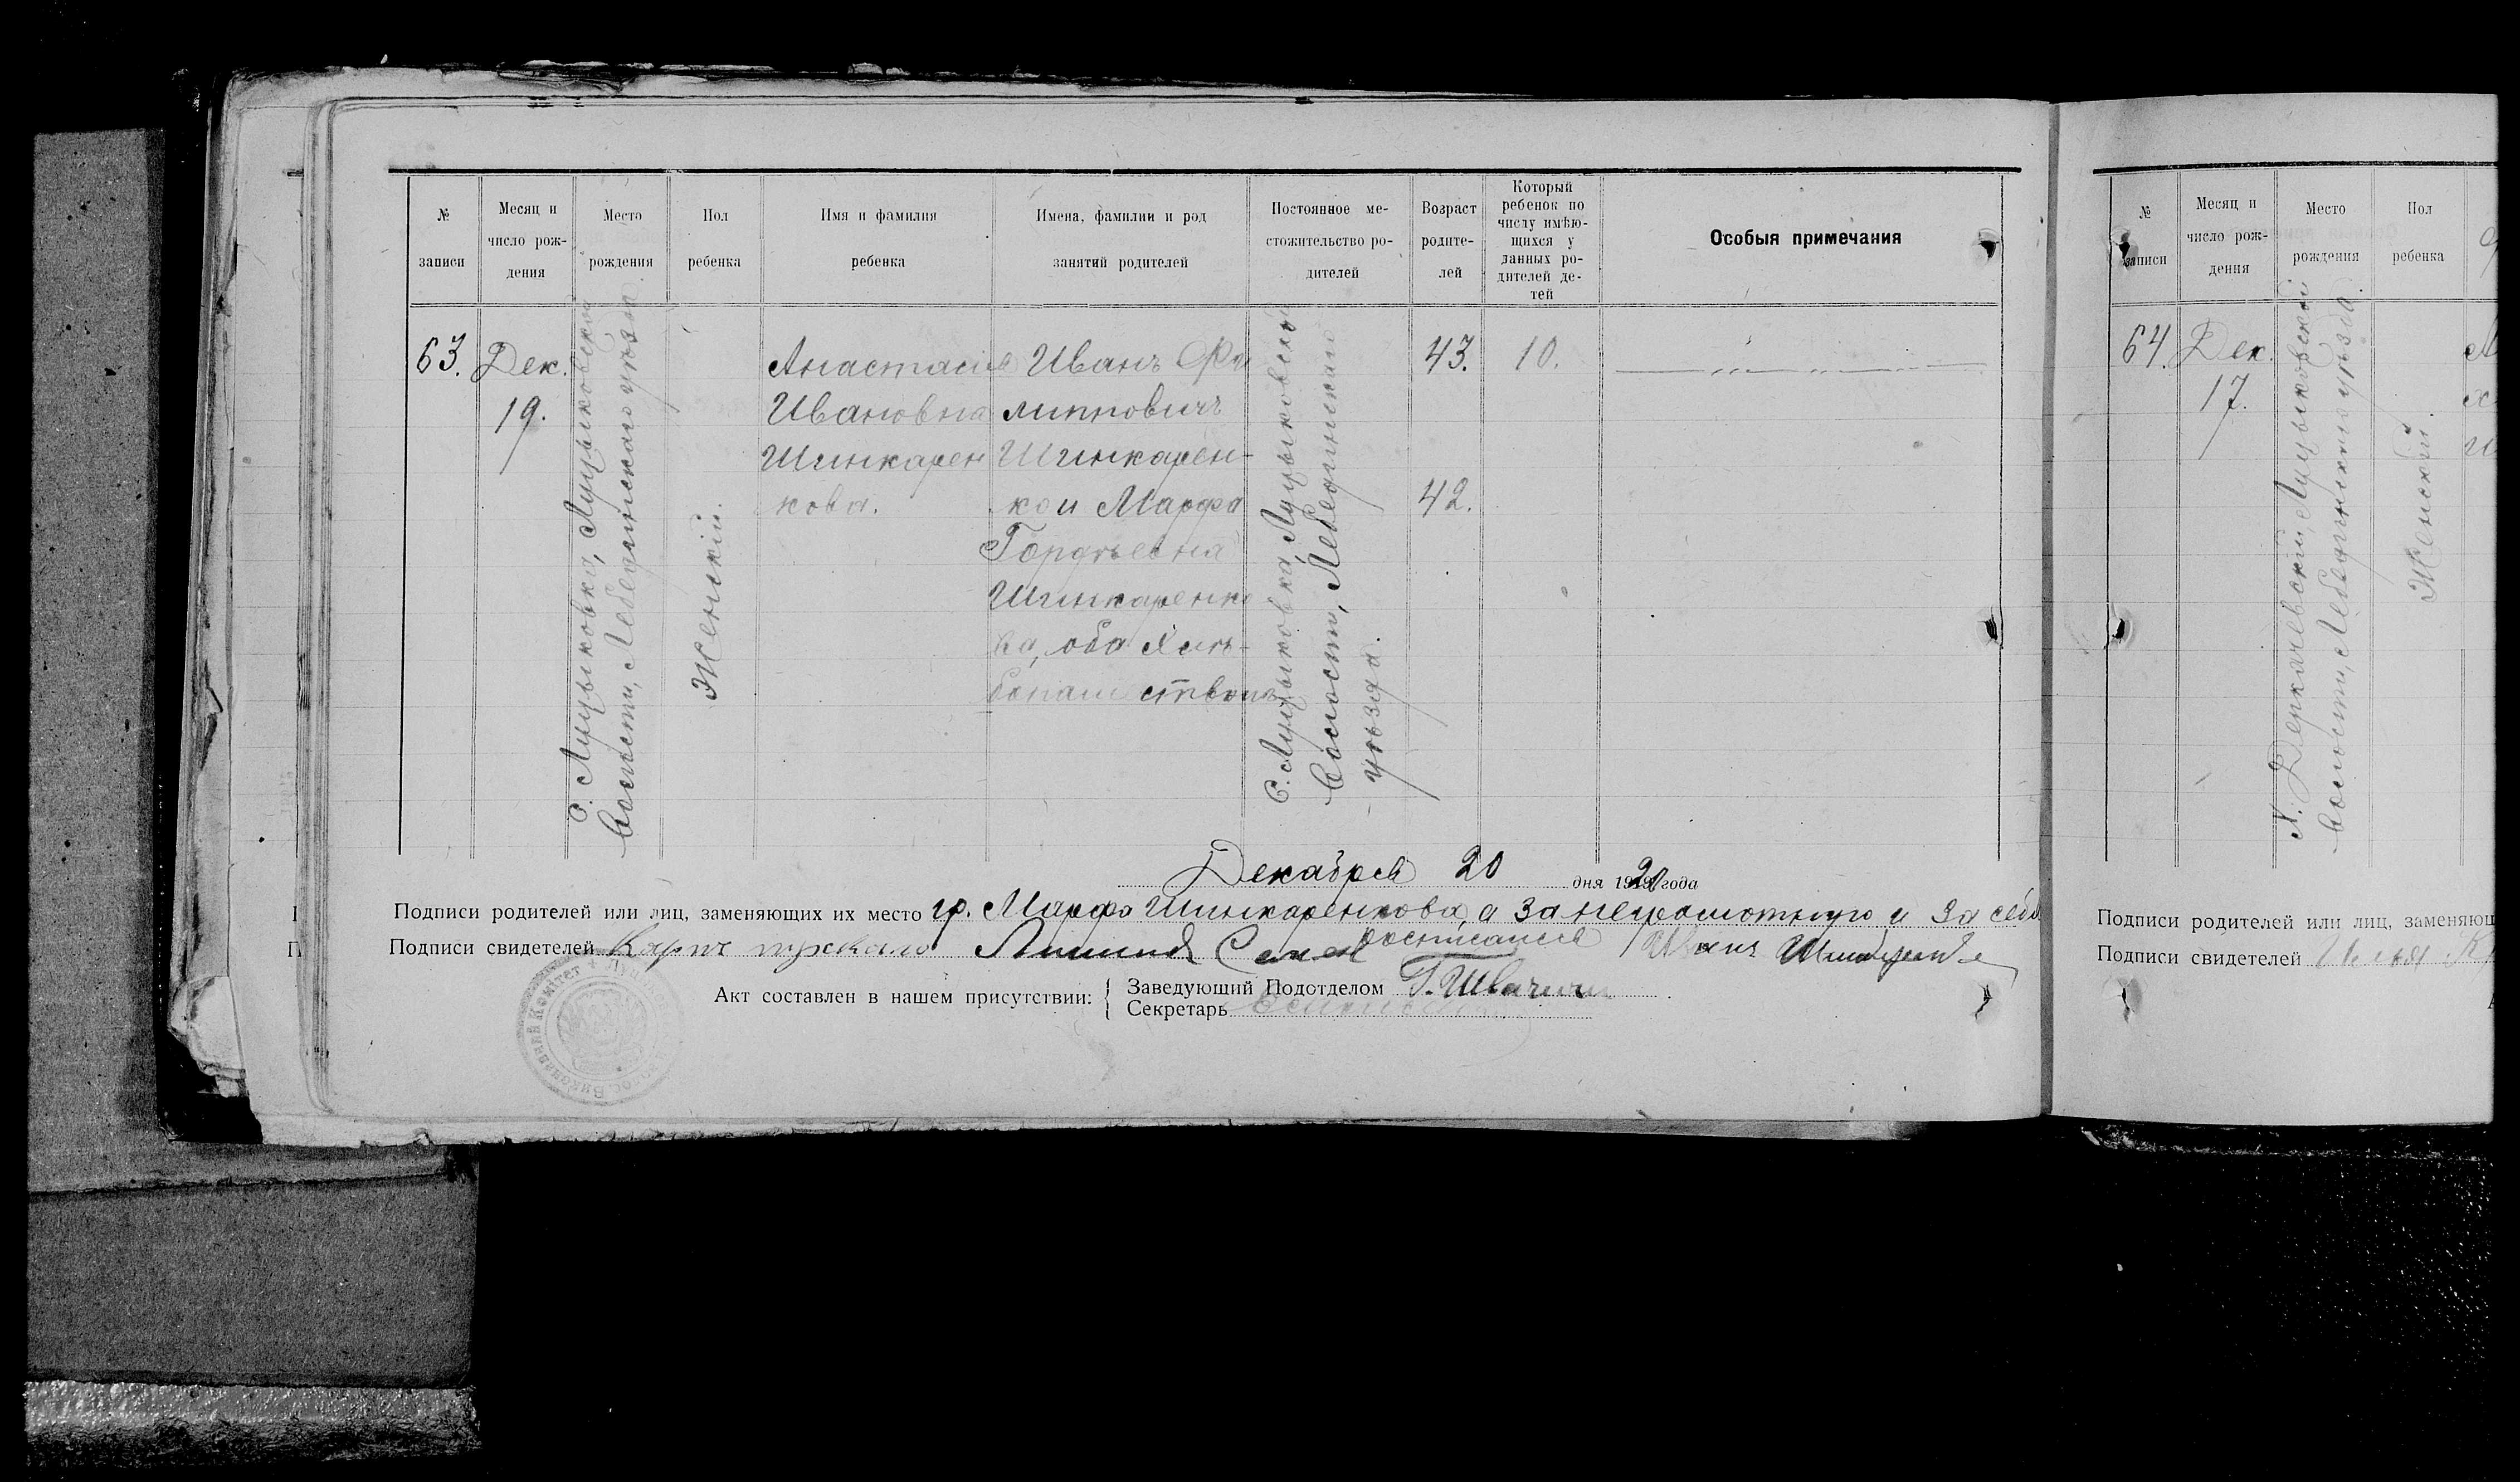 № записи
Месяц и число рож-дения
Место рождения
Пол ребенка
Имя и фамилия ребенка
Имена, фамилии и род занятий родителей
Постоянное ме-стожительство ро-дителей
Возраст родите-лей
Который ребенок по числу имѣю-щихся у данных ро-дителей де-тей
Особыя примечания
63.
Дек.
19.
С. Луцыковка, Луцыковской
волости, Лебединскаго уѣзда.
Женскій.
Анастасія
Ивановна
Шинкарен
кова.
Иванъ Фи
липповичъ
Шинкарен-
ко и Марфа
Гордѣевна
Шинкаренко
ва, оба
С. Луцыковка, Луцыковской
волости, Лебединскаго
уѣзда.
43.
42.
10.
Декабря 20 дня 1920 года
Подписи родителей или лиц, заменяющих их место гр. Марфа Шинкаренкова, а за неграмотную и за себя
росписался Иванъ
Подписи свидетелей Карпъ
Акт составлен в нашем присутствии:
Заведующий Подотделом Г. Швачич
Секретарь
№ записи
Месяц и число рож-дения
Место рождения
Пол ребенка
64.
Дек.
17.
Х. Деркачевский, Луцыковской
волости, Лебединскаго уѣзда.
Женскій.
Подписи родителей или лиц, заменяющ
Подписи свидетелей Илья